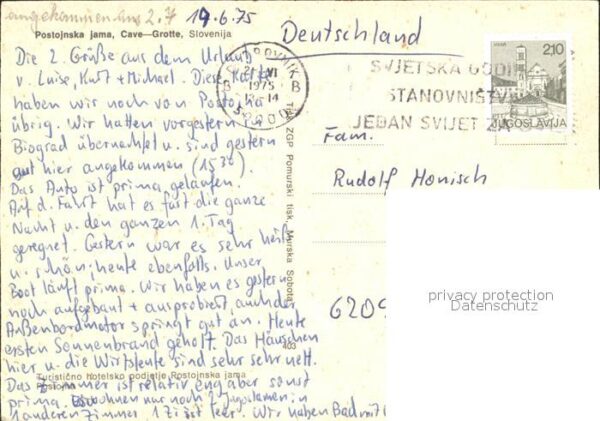 angekommen am 2.7
19.6.75
Deutschland
Postojnska jama, Cave—Grotte, Slovenija
Die 2. Grüße aus dem Urlaub
v. Luise, Kurt + Michael. Diese Karte
haben wir noch von Postojna
übrig. Wir hatten vorgestern in
Biograd übernachtet u. sind gestern
gut hier angekommen (15³⁰).
Das Auto ist prima gelaufen.
Auf d. Fahrt hat es fast die ganze
Nacht u. den ganzen 1. Tag
geregnet. Gestern war es sehr heiß
u. schön, heute ebenfalls. Unser
Boot läuft prima. Wir haben es gestern
noch aufgebaut + ausprobiert, auch der
Außenbordmotor springt gut an. Heute
ersten Sonnenbrand geholt. Das Häuschen
hier u. die Wirtsleute sind sehr sehr nett.
Das Zimmer ist relativ eng aber sonst
prima. Es wohnen nur noch 2 Jugoslawen in
1 anderen Zimmer 1 Zi ist leer. Wir haben Bad mit
Turistično hotelsko podjetje Postojnska jama
Postojna
Tisk ZGP Pomurski tisk, Murska Sobota
403
VI
1975
12-14
B
B
SVJETSKA GODI
STANOVNIŠTV
JEDAN SVIJET Z
2,10
JUGOSLAVIJA
Fam.
Rudolf Honisch
6209
privacy protection
Datenschutz